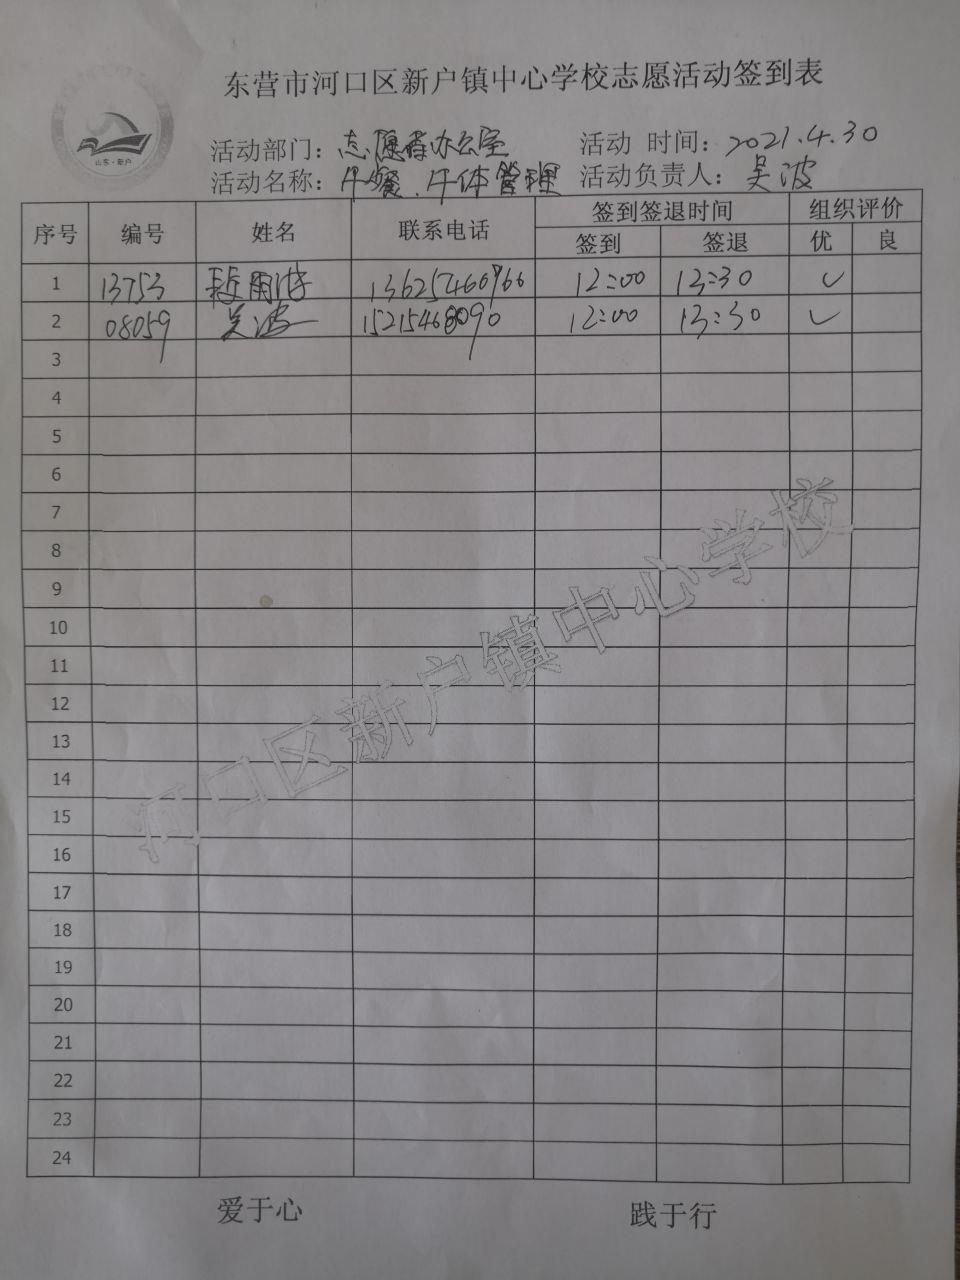 东营市河口区新户镇中心学校志愿活动签到表
山东·新户
活动部门：志愿者办公室 活动 时间：2021.4.30
活动名称：午餐、午休管理 活动负责人：吴波
序号 编号 姓名 联系电话 签到签退时间 组织评价
签到 签退 优 良
1 13753 段雨 13625460766 12:00 13:30 ✓
2 08059 吴波 15215468090 12:00 13:30 ✓
3
4
5
6
7
8
9
10
11
12
13
14
15
16
17
18
19
20
21
22
23
24
河口区新户镇中心学校
爱于心 践于行